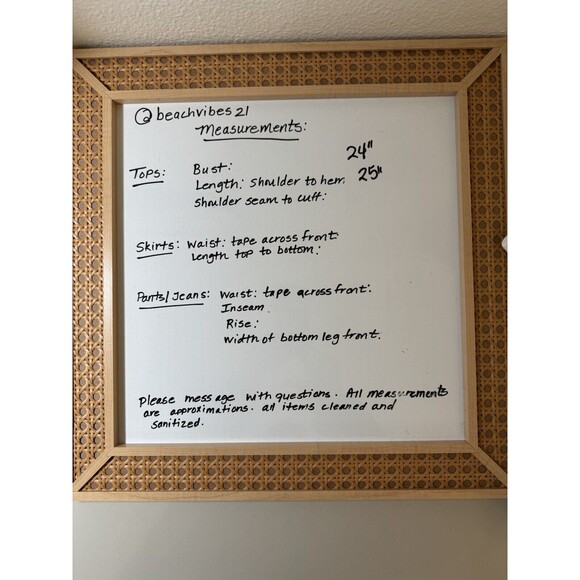 @beachvibes21
Measurements:
Tops: Bust: 24"
Length: Shoulder to hem. 25"
Shoulder seam to cuff:
Skirts: Waist: tape across front:
Length top to bottom:
Pants/Jeans: Waist: tape across front:
Inseam.
Rise:
Width of bottom leg front.
Please message with questions. All measurements
are approximations. all items cleaned and
sanitized.